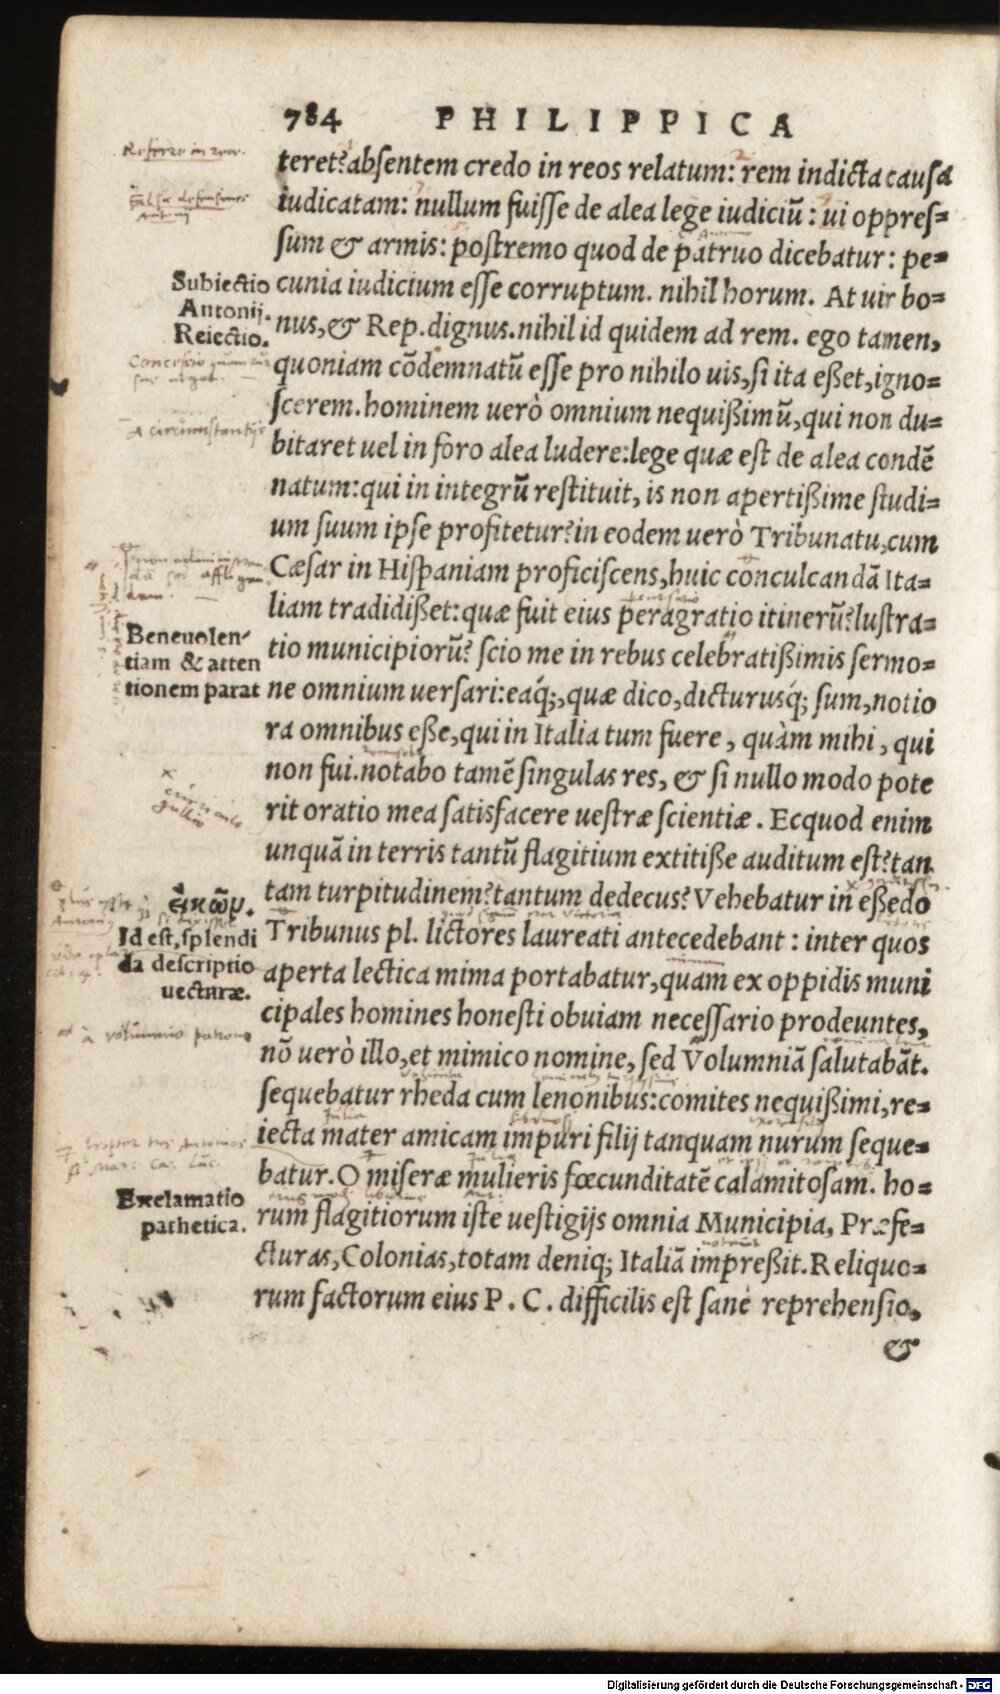 784 PHILIPPICA
teret? absentem credo in reos relatum: rem indicta causa
iudicatam: nullum fuisse de alea lege iudiciũ: ui oppres=
sum & armis: postremo quod de patruo dicebatur: pe=
Subiectio
Antonij.
Reiectio.
cunia iudicium esse corruptum. nihil horum. At uir bo=
nus, & Rep. dignus. nihil id quidem ad rem. ego tamen,
quoniam cõdemnatũ esse pro nihilo uis, si ita eßet, igno=
scerem. hominem uerò omnium nequißimũ, qui non du=
A circumstantijs
bitaret uel in foro alea ludere: lege quæ est de alea condẽ
natum: qui in integrũ restituit, is non apertißime studi=
um suum ipse profitetur? in eodem uerò Tribunatu, cum
Cæsar in Hispaniam proficiscens, huic conculcandã Ita=
liam tradidißet: quæ fuit eius peragratio itinerũ? lustra=
Beneuolen-
tiam & atten
tionem parat
tio municipiorũ? scio me in rebus celebratißimis sermo=
ne omnium uersari: eaq́;, quæ dico, dicturusq́; sum, notio
ra omnibus eße, qui in Italia tum fuere, quàm mihi, qui
non fui. notabo tamẽ singulas res, & si nullo modo pote
rit oratio mea satisfacere uestræ scientiæ. Ecquod enim
unquã in terris tantũ flagitium extitiße auditum est? tan
tam turpitudinem? tantum dedecus? Vehebatur in eßedo
εἰκὼν.
Id est, splendi
da descriptio
uecturæ.
Tribunus pl. lictores laureati antecedebant: inter quos
aperta lectica mima portabatur, quam ex oppidis muni
cipales homines honesti obuiam necessario prodeuntes,
à volumnio patrono
nõ uerò illo, et mimico nomine, sed Volumniã salutabãt.
sequebatur rheda cum lenonibus: comites nequißimi, re=
iecta mater amicam impuri filij tanquam nurum seque=
batur. O miseræ mulieris fœcunditatẽ calamitosam. ho=
Exclamatio
pathetica.
rum flagitiorum iste uestigijs omnia Municipia, Præfe=
cturas, Colonias, totam deniq; Italiã impreßit. Reliquo=
rum factorum eius P. C. difficilis est sane reprehensio,
&
Digitalisierung gefördert durch die Deutsche Forschungsgemeinschaft - DFG